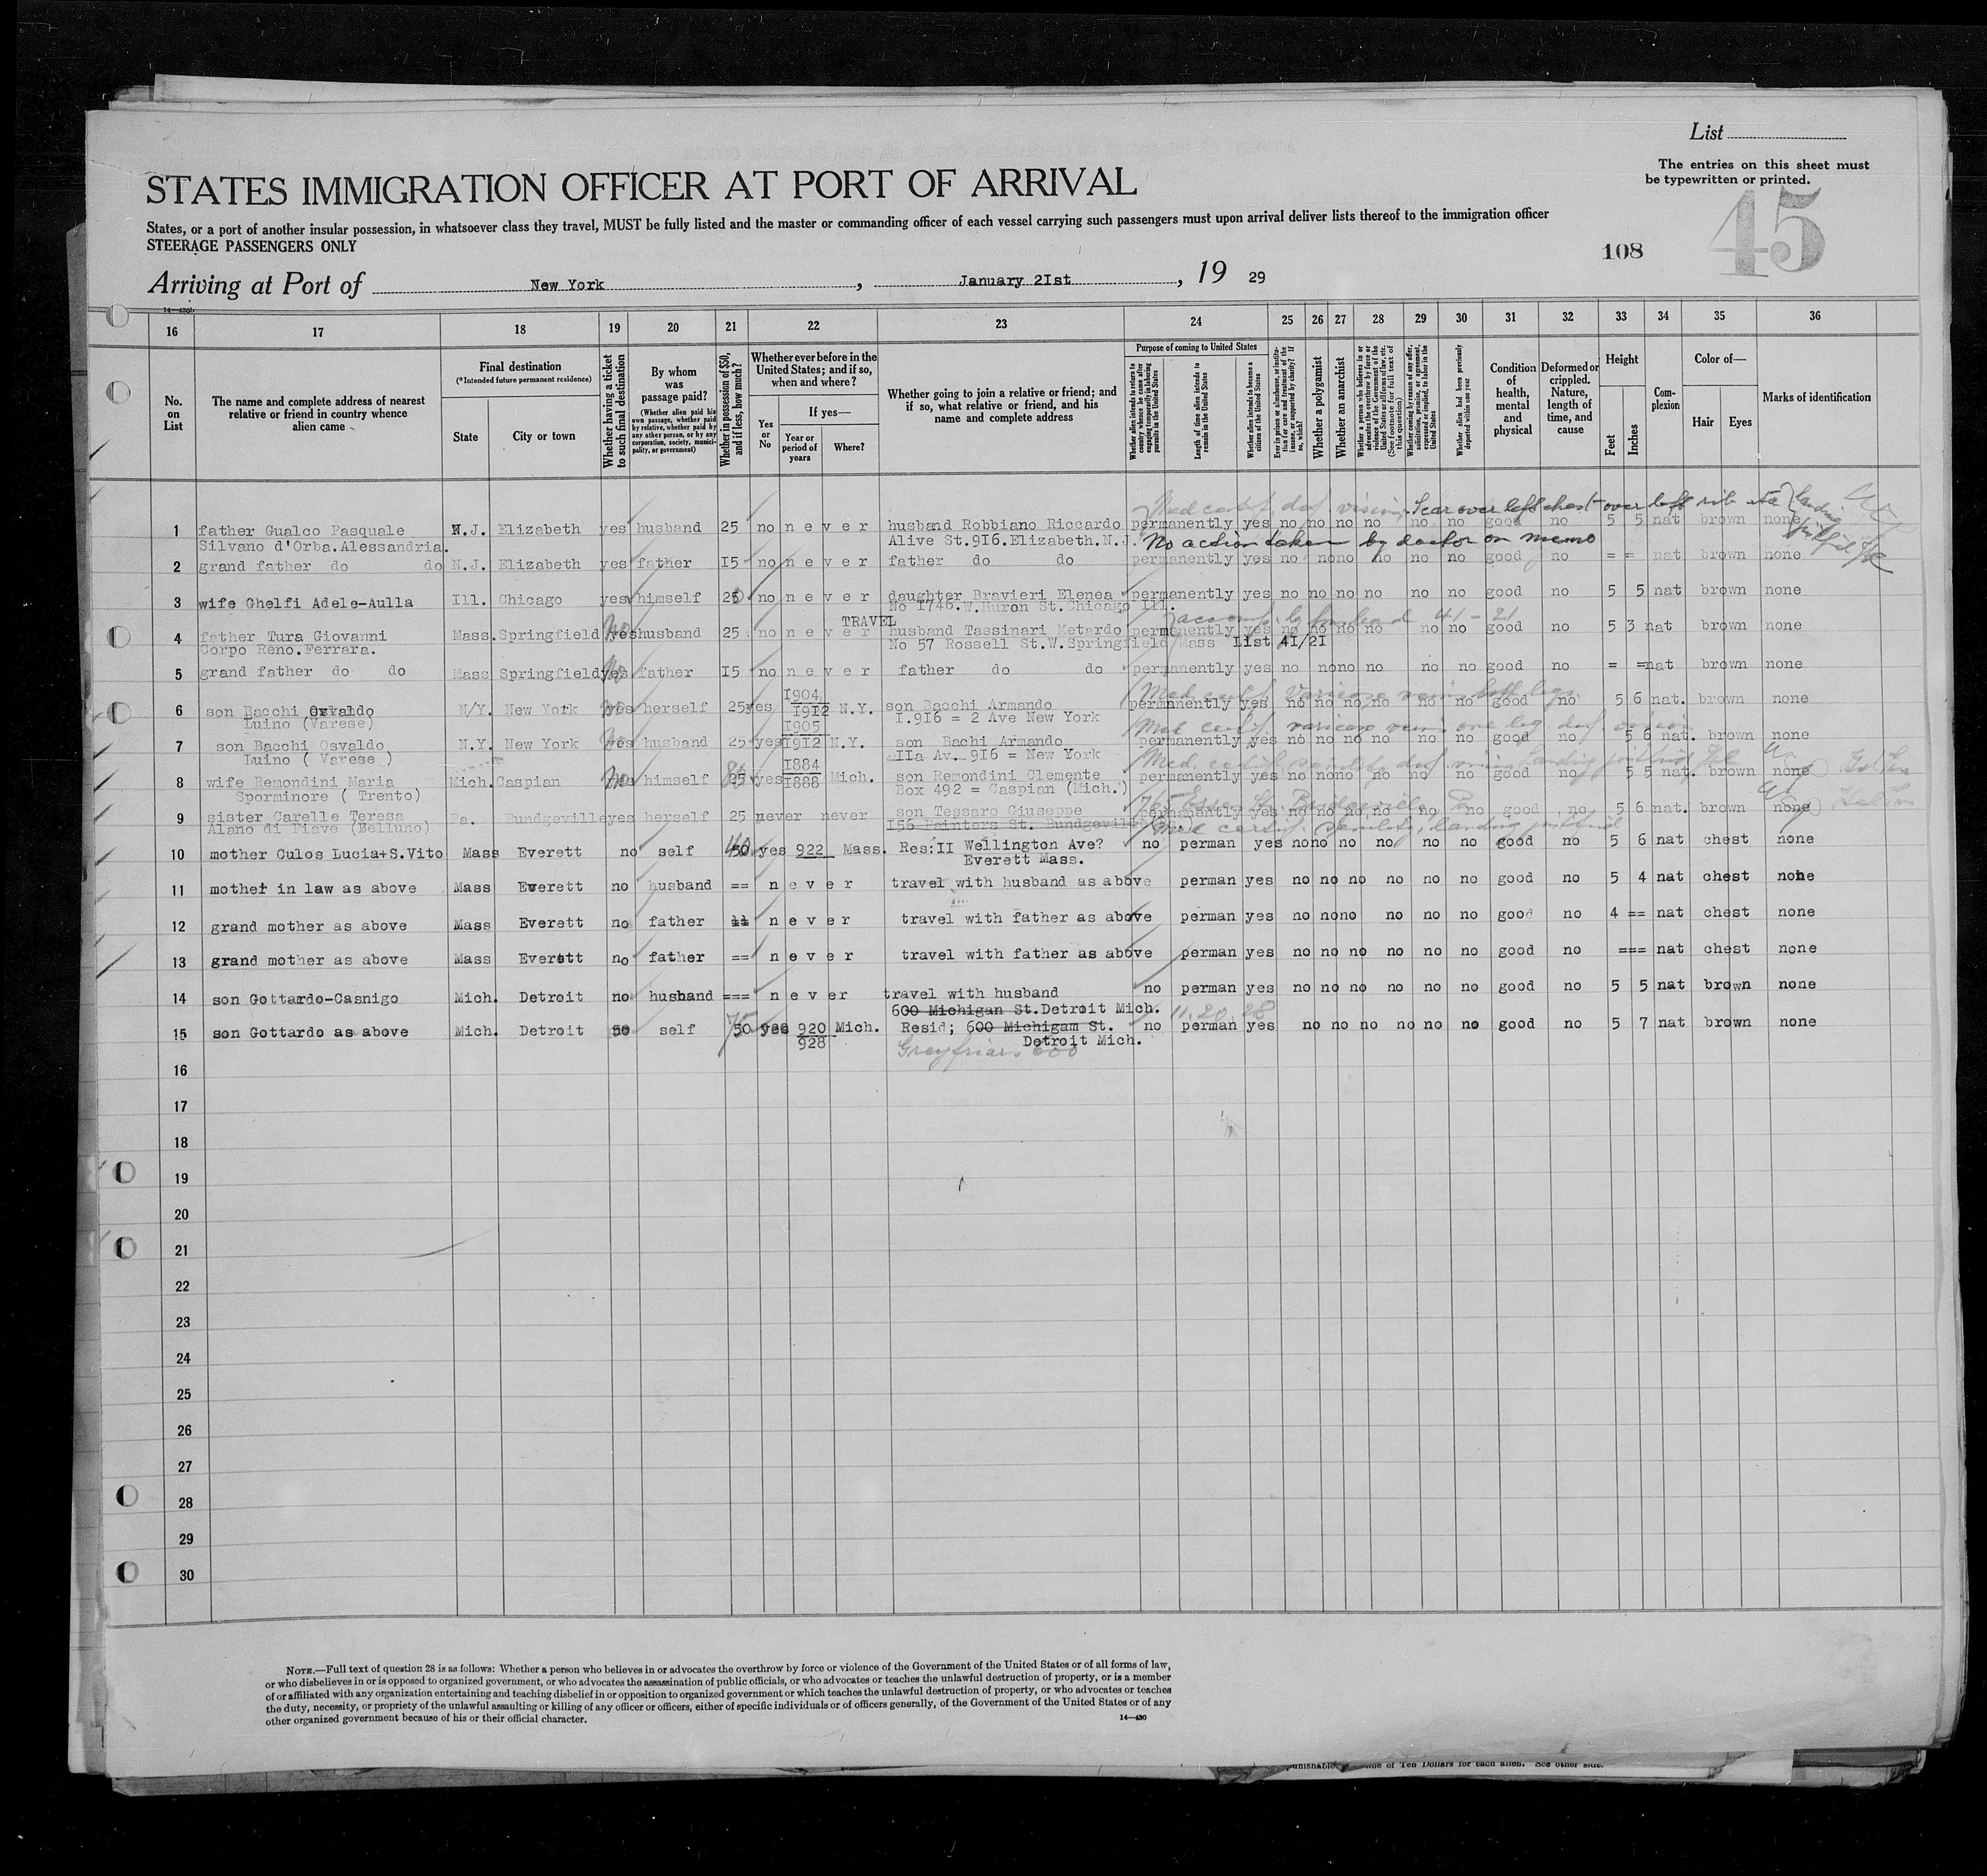 List
The entries on this sheet must
be typewritten or printed.
STATES IMMIGRATION OFFICER AT PORT OF ARRIVAL
45
States, or a port of another insular possession, in whatsoever class they travel, MUST be fully listed and the master or commanding officer of each vessel carrying such passengers must upon arrival deliver lists thereof to the immigration officer
STEERAGE PASSENGERS ONLY
108
Arriving at Port of New York, January 2Ist, 19 29
16 17 18 19 20 21 22 23 24 25 26 27 28 29 30 31 32 33 34 35 36
No. on List
The name and complete address of nearest relative or friend in country whence alien came
Final destination
(*Intended future permanent residence)
State
City or town
Whether having a ticket to such final destination
By whom was passage paid?
(Whether alien paid his own passage, whether paid by relative, whether paid by any other person, or by any corporation, society, municipality, or government)
Whether in possession of $50, and if less, how much?
Whether ever before in the United States; and if so, when and where?
Yes or No
If yes—
Year or period of years
Where?
Whether going to join a relative or friend; and if so, what relative or friend, and his name and complete address
Purpose of coming to United States
Whether alien intends to return to country whence he came after engaging temporarily in laboring pursuits in the United States
Length of time alien intends to remain in the United States
Whether alien intends to become a citizen of the United States
Ever in prison or almshouse, or institution for care and treatment of the insane, or supported by charity? If so, which?
Whether a polygamist
Whether an anarchist
Whether a person who believes in or advocates the overthrow by force or violence of the Government of the United States or all forms of law, etc. (See footnote for full text of this question)
Whether coming by reason of any offer, solicitation, promise, or agreement, expressed or implied, to labor in the United States
Whether alien had been previously deported within one year
Condition of health, mental and physical
Deformed or crippled. Nature, length of time, and cause
Height
Feet
Inches
Complexion
Color of—
Hair
Eyes
Marks of identification
Med certif. def. vision. Scar over left chest over left rib
landing
1 father Gualco Pasquale N.J. Elizabeth yes husband 25 no never husband Robbiano Riccardo permanently yes no no no no no no good no 5 5 nat brown none
Silvano d'Orba.Alessandria. Alive St.9I6.Elizabeth.N.J. No action taken by doctor on memo
2 grand father do do N.J. Elizabeth yes father I5 no never father do do permanently yes no no no no no no good no = = nat brown none
3 wife Ghelfi Adele-Aulla Ill. Chicago yes himself 25 no never daughter Bravieri Elenea permanently yes no no no no no no good no 5 5 nat brown none
No I746.W.Huron St.Chicago Ill.
TRAVEL accomp. by husband 41 - 21
4 father Tura Giovanni Mass. Springfield yes husband 25 no never husband Tassinari Metardo permanently yes no no no no no no good no 5 3 nat brown none
Corpo Reno.Ferrara. No 57 Rossell St.W.Springfield Mass LIst 4I/2I
5 grand father do do Mass Springfield yes father I5 no never father do do permanently yes no no no no no no good no = = nat brown none
I904 Med. certif. varicose veins both legs.
6 son Bacchi Osvaldo N/Y. New York yes herself 25 yes I9I2 N.Y. son Bacchi Armando permanently yes no no no no no no good no 5 6 nat. brown none
Luino (Varese) I.9I6 = 2 Ave New York
I905 Med certif. varicose veins one leg. def. vision
7 son Bacchi Osvaldo N.Y. New York yes husband 25 yes I9I2 N.Y. son Bachi Armando permanently yes no no no no no no good no 5 6 nat. brown none
Luino ( Varese ) IIa Av. 9I6 = New York
I884 Med. certif. senility def. vision landing justified
8 wife Remondini Maria Mich. Caspian no himself 25 yes I888 Mich. son Remondini Clemente permanently yes no no no no no no good no 5 5 nat. brown none
Sporminore ( Trento) Box 492 = Caspian (Mich.)
765 Bridgeville Pa
9 sister Carelle Teresa Pa. Bundgeville yes herself 25 never never son Tessaro Giuseppe permanently yes no no no no no no good no 5 6 nat. brown none
Alano di Piave (Belluno) I56 Painters St. Bundgeville Med certif. senility, landing justified
10 mother Culos Lucia+S.Vito Mass Everett no self 40 yes 922 Mass. Res:II Wellington Ave? no perman yes no no no no no no good no 5 6 nat chest none
Everett Mass.
11 mother in law as above Mass Everett no husband == never travel with husband as above perman yes no no no no no no good no 5 4 nat chest none
12 grand mother as above Mass Everett no father == never travel with father as above perman yes no no no no no no good no 4 == nat chest none
13 grand mother as above Mass Everett no father == never travel with father as above perman yes no no no no no no good no === nat chest none
14 son Gottardo-Casnigo Mich. Detroit no husband === never travel with husband no perman yes no no no no no no good no 5 5 nat brown none
600 Michigan St.Detroit Mich. 11.20.28
15 son Gottardo as above Mich. Detroit no self 50 yes 920 Mich. Resid; 600 Michigam St. no perman yes no no no no no no good no 5 7 nat brown none
928 Detroit Mich.
Greyfriars 600
16
17
18
19
20
21
22
23
24
25
26
27
28
29
30
NOTE.—Full text of question 28 is as follows: Whether a person who believes in or advocates the overthrow by force or violence of the Government of the United States or of all forms of law,
or who disbelieves in or is opposed to organized government, or who advocates the assassination of public officials, or who advocates or teaches the unlawful destruction of property, or is a member
of or affiliated with any organization entertaining and teaching disbelief in or opposition to organized government or which teaches the unlawful destruction of property, or who advocates or teaches
the duty, necessity, or propriety of the unlawful assaulting or killing of any officer or officers, either of specific individuals or of officers generally, of the Government of the United States or of any
other organized government because of his or their official character.
14—430
of Ten Dollars for each alien. See other side.